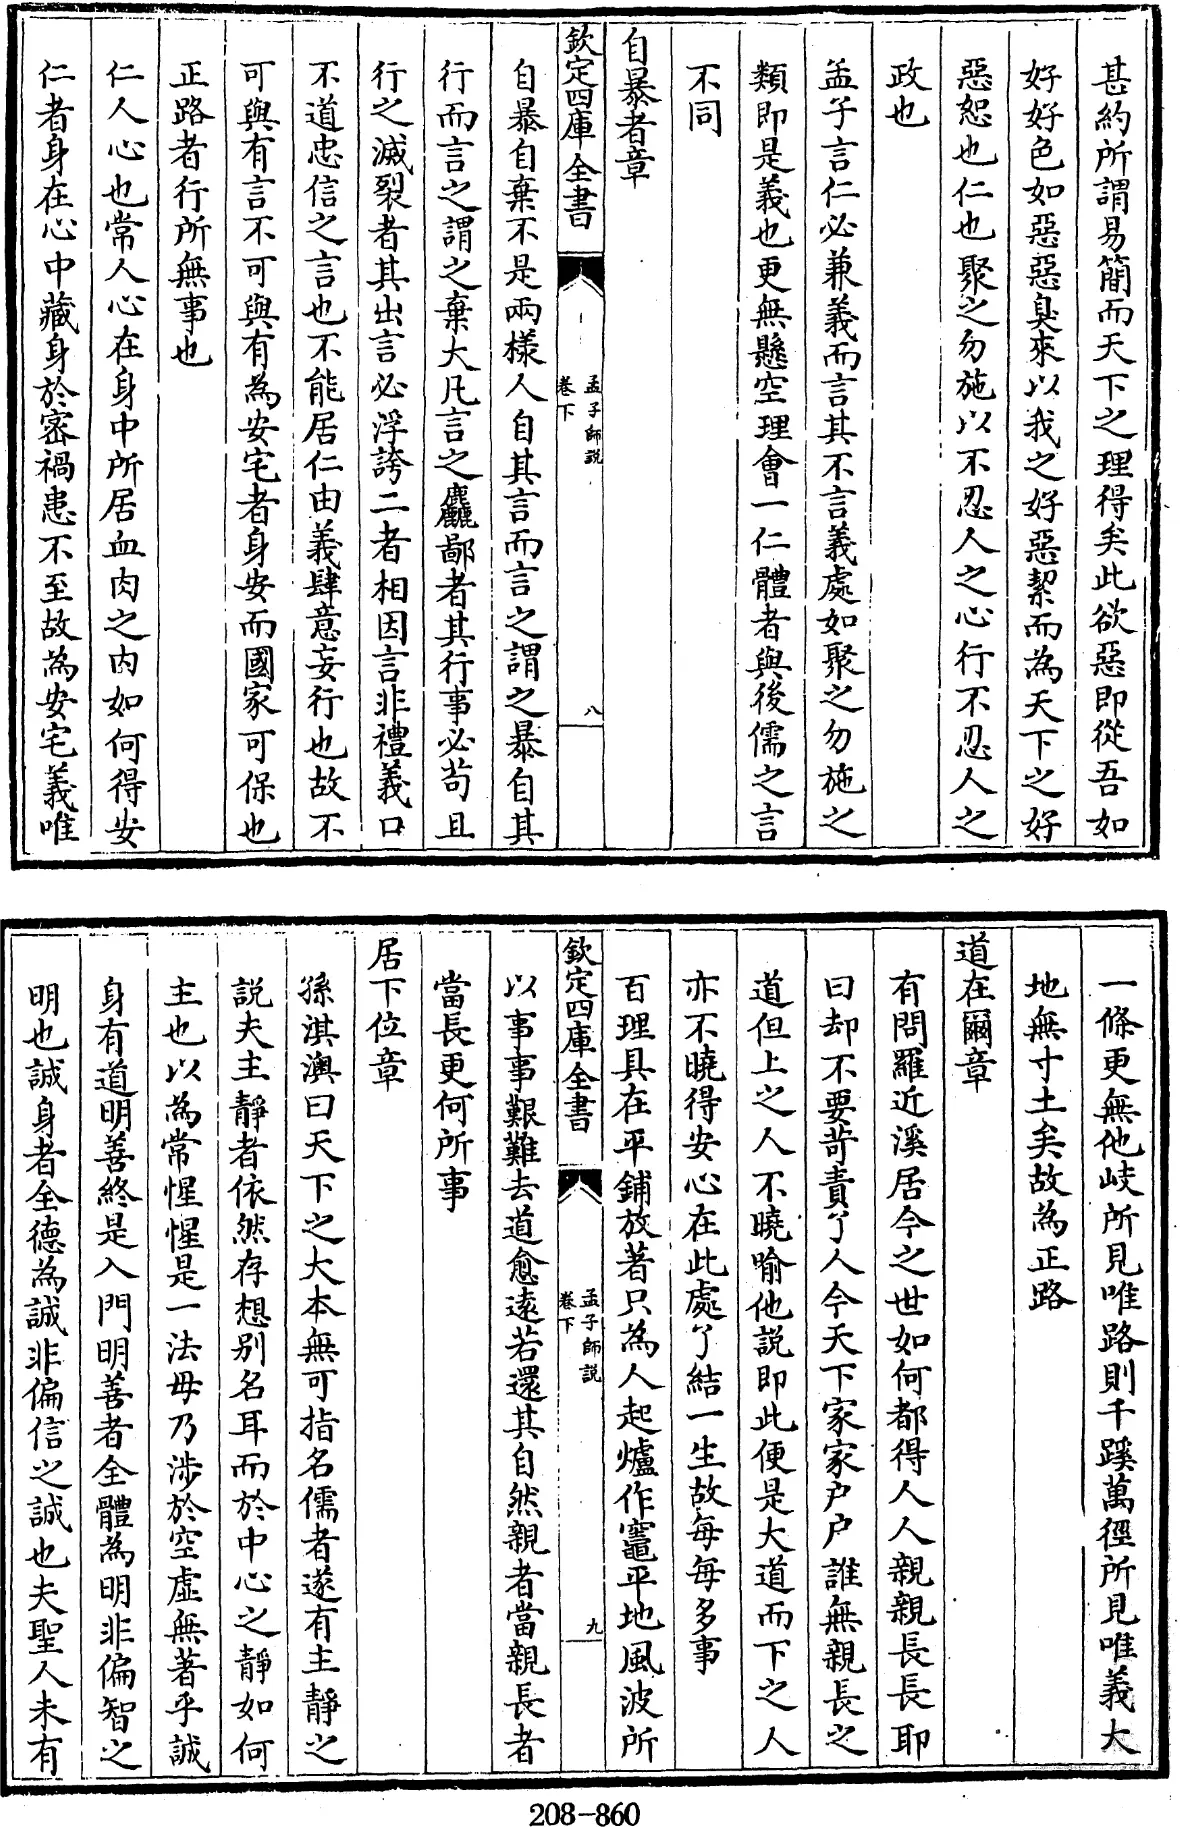 甚約所謂易簡而天下之理得矣此欲惡即從吾如
好好色如惡惡臭來以我之好惡絜而為天下之好
惡恕也仁也聚之勿施以不忍人之心行不忍人之
政也
孟子言仁必兼義而言其不言義處如聚之勿施之
類即是義也更無懸空理會一仁體者與後儒之言
不同
自暴者章
欽定四庫全書
孟子師說
卷下
八
自暴自棄不是兩樣人自其言而言之謂之暴自其
行而言之謂之棄大凡言之麤鄙者其行事必苟且
行之滅裂者其出言必浮誇二者相因言非禮義口
不道忠信之言也不能居仁由義肆意妄行也故不
可與有言不可與有為安宅者身安而國家可保也
正路者行所無事也
仁人心也常人心在身中所居血肉之内如何得安
仁者身在心中藏身於密禍患不至故為安宅義唯
一條更無他岐所見唯路則千蹊萬徑所見唯義大
地無寸土矣故為正路
道在爾章
有問羅近溪居今之世如何都得人人親親長長耶
曰却不要苛責了人今天下家家户户誰無親長之
道但上之人不曉喻他説即此便是大道而下之人
亦不曉得安心在此處了結一生故每每多事
百理具在平鋪放著只為人起爐作竈平地風波所
欽定四庫全書
孟子師說
卷下
九
以事事艱難去道愈遠若還其自然親者當親長者
當長更何所事
居下位章
孫淇澳曰天下之大本無可指名儒者遂有主靜之
説夫主靜者依然存想别名耳而於中心之靜如何
主也以為常惺惺是一法毋乃涉於空虛無著乎誠
身有道明善終是入門明善者全體為明非偏智之
明也誠身者全德為誠非偏信之誠也夫聖人未有
208-860